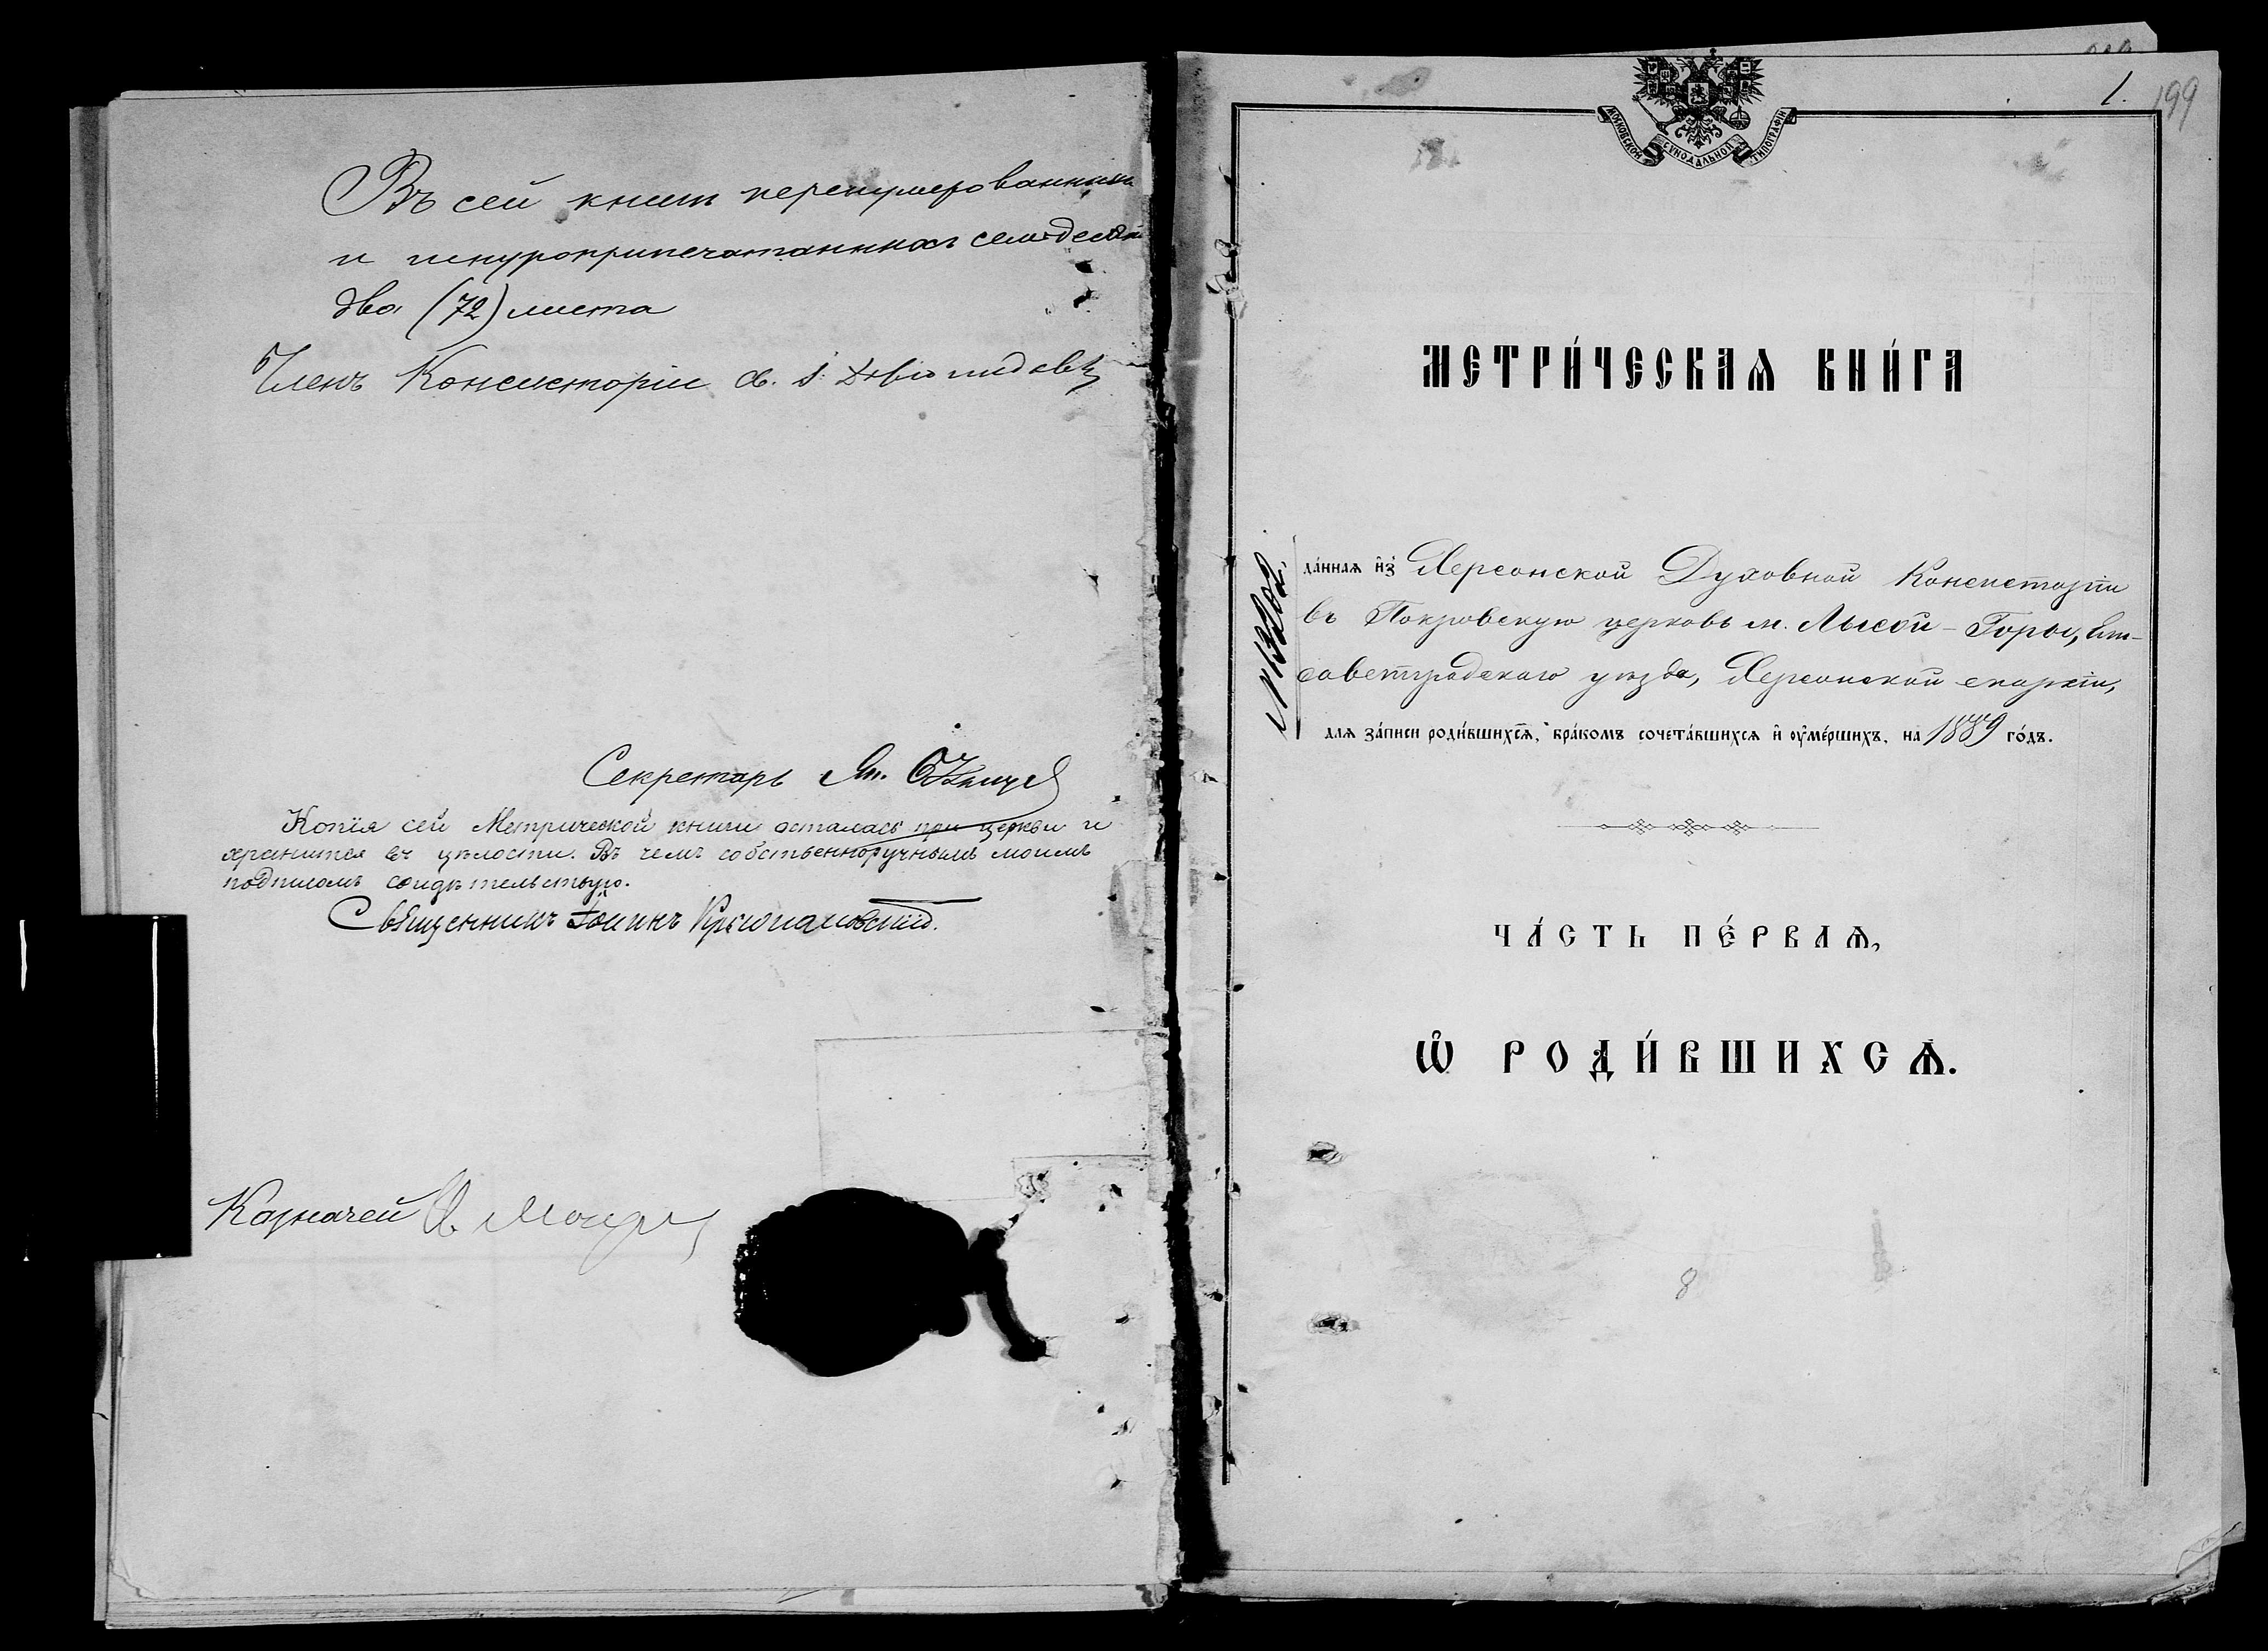 Въ сей книгѣ перенумерованныхъ
и шнуроприпечатанныхъ семьдесятъ
два (72) листа
Членъ Консисторіи св. І.
Секретарь
Копія сей Метрической книги осталась при церкви и
хранится въ цѣлости. Въ чемъ собственноручнымъ моимъ
подписомъ свидѣтельствую.
Священникъ Іоаннъ
Казначей
1. 199
МОСКОВСКОЙ СѴНОДАЛЬНОЙ ТИПОГРАФІИ
МЕТРИ́ЧЕСКАѦ КНИ́ГА
да́нная и҆з̾ Херсонской Духовной Консисторіи
въ Покровскую церковь м. Лысой-Горы, Ели-
саветградскаго уѣзда, Херсонской епархіи,
для за́писи роди́вшихсѧ, бра́комъ сочета́вшихся и҆ оу҆ме́ршихъ, на 1889 го́дъ.
ЧА́СТЬ ПЕ́РВАѦ,
Ѡ҆ РОДИ́ВШИХСѦ.
8